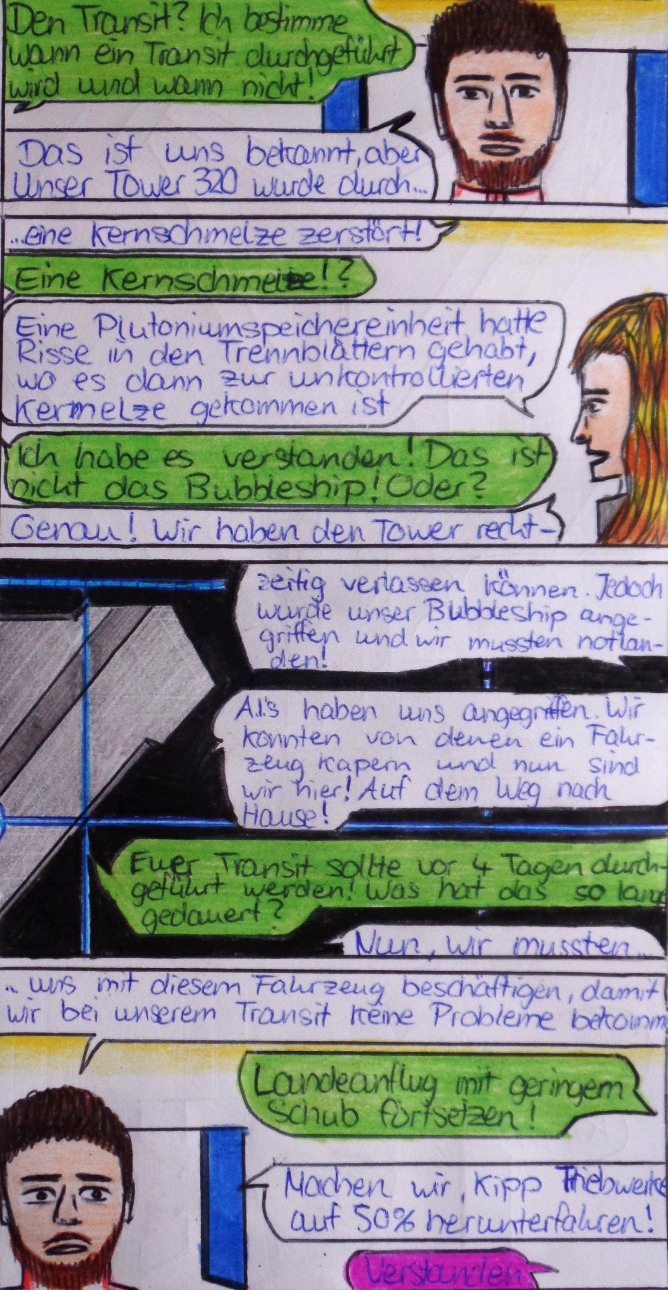 Den Transit? Ich bestimme
wann ein Transit durchgeführt
wird und wann nicht!
Das ist uns bekannt, aber
Unser Tower 320 wurde durch...
...eine Kernschmelze zerstört!
Eine Kernschmelze!?
Eine Plutoniumspeichereinheit hatte
Risse in den Trennblättern gehabt,
wo es dann zur unkontrollierten
Kermelze gekommen ist
Ich habe es verstanden! Das ist
nicht das Bubbleship! Oder?
Genau! Wir haben den Tower recht-
zeitig verlassen können. Jedoch
wurde unser Bubbleship ange-
griffen und wir mussten notlan-
den!
A.I.'s haben uns angegriffen. Wir
konnten von denen ein Fahr-
zeug kapern und nun sind
wir hier! Auf dem Weg nach
Hause!
Euer Transit sollte vor 4 Tagen durch-
geführt werden! Was hat das so lang
gedauert?
Nun, wir mussten...
.. uns mit diesem Fahrzeug beschäftigen, damit
wir bei unserem Transit keine Probleme bekomm
Landeanflug mit geringem
Schub fortsetzen!
Machen wir, Kipp Triebwerke
auf 50% herunterfahren!
Verstanden.